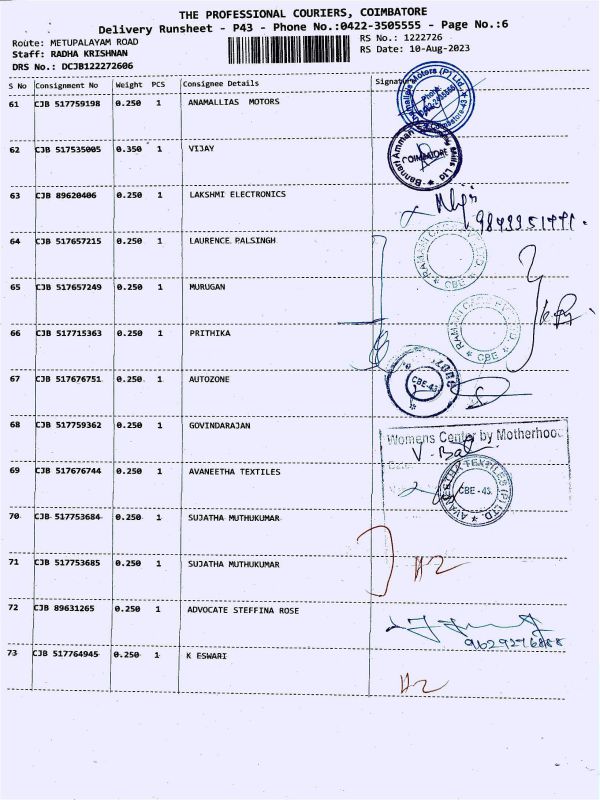 THE PROFESSIONAL COURIERS, COIMBATORE
Delivery Runsheet - P43 - Phone No.:0422-3505555 - Page No.:6
Route: METUPALAYAM ROAD
Staff: RADHA KRISHNAN
DRS No.: DCJB122272606
RS No.: 1222726
RS Date: 10-Aug-2023
S No Consignment No Weight PCS Consignee Details Signature
61 CJB 517759198 0.250 1 ANAMALLIAS MOTORS
62 CJB 517535005 0.350 1 VIJAY
COIMBATORE
63 CJB 89620406 0.250 1 LAKSHMI ELECTRONICS
64 CJB 517657215 0.250 1 LAURENCE PALSINGH
CBE
65 CJB 517657249 0.250 1 MURUGAN
66 CJB 517715363 0.250 1 PRITHIKA
CBE
67 CJB 517676751 0.250 1 AUTOZONE
CBE-43
68 CJB 517759362 0.250 1 GOVINDARAJAN
Womens Center by Motherhood
69 CJB 517676744 0.250 1 AVANEETHA TEXTILES
AVANEETHA TEXTILES (P) LTD.
CBE -43
70 CJB 517753684 0.250 1 SUJATHA MUTHUKUMAR
71 CJB 517753685 0.250 1 SUJATHA MUTHUKUMAR
72 CJB 89631265 0.250 1 ADVOCATE STEFFINA ROSE
73 CJB 517764945 0.250 1 K ESWARI